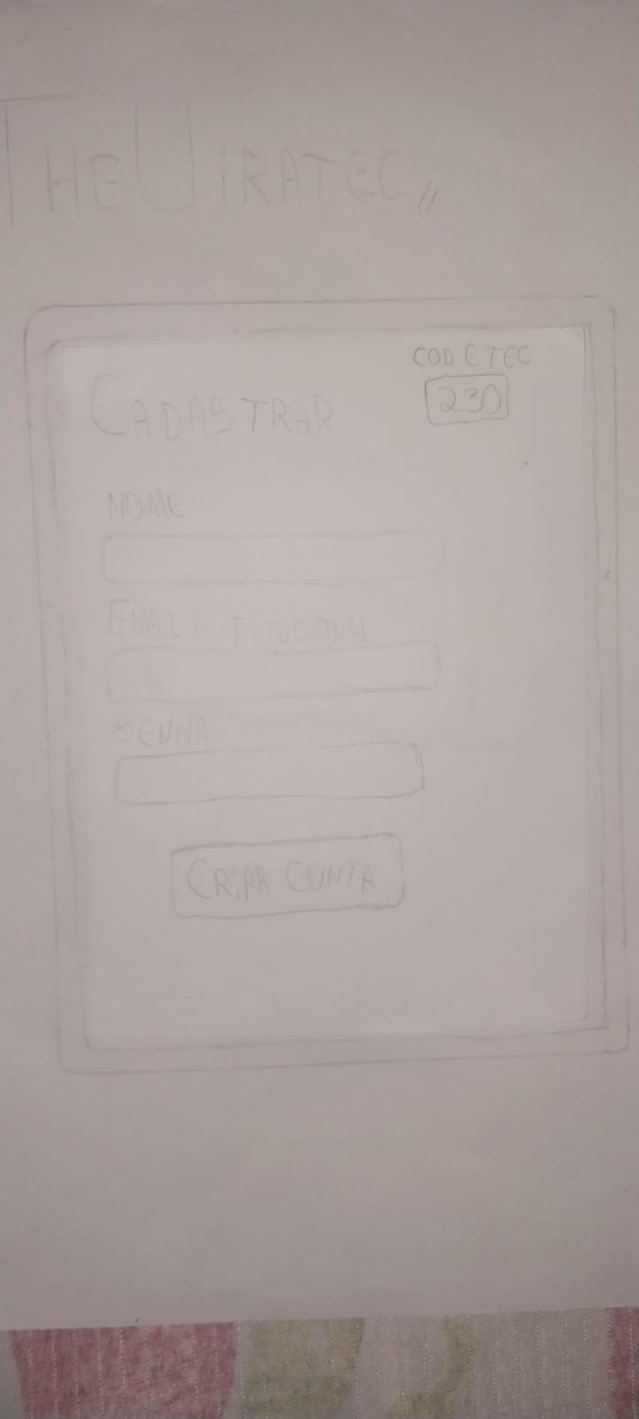 THE UIRATEC,,
COD ETEC
230
CADASTRAR
NOME
EMAIL INSTITUCIONAL
SENHA
CRIAR CONTA